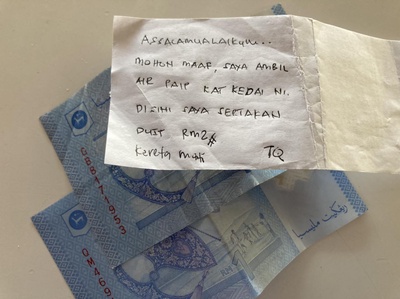 ASSALAMUALAIKUM..
MOHON MAAF, SAYA AMBIL
AIR PAIP KAT KEDAI NI.
DISINI SAYA SERTAKAN
DUIT RM2
Kereta mati TQ
GB8171953
QM469
RM